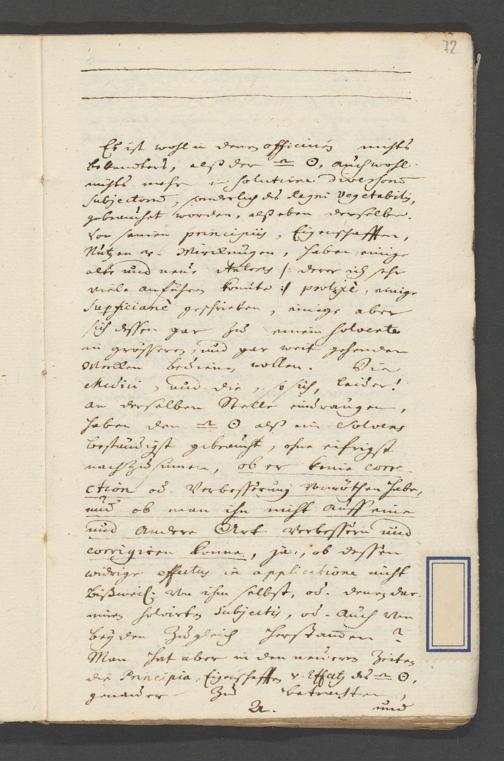 72
Es ist wohl in denen officinis nichts
bekandters, alß der 🜊 ☉, auch wohl
nichts mehr in solutione diversorum
subjectorum, sonderlich des Regni vegetabilis,
gebrauchet worden, alß eben derselbe.
Von seinen principiis, Eigenschafften,
Nutzen u. Würckungen, haben einige
alte und neue Autores |: derer ich sehr
viele anführen könnte :| prolixe, einige
superficiarie geschrieben, einige aber
sich dessen gar zu einem solvente
in grössern, und gar weit gehenden
Wercken bedienen wollen. Die
Medici, und die, so sich, leider!
an derselben Stelle eindrangen,
haben den ☉ alß ein Solvens
beständigst gebraucht, ohne eifrigst
nachzusinnen, ob er keine corre-
ction od. Verbesserung vonnöthen habe,
und ob man ihn nicht auff eine
und andere Art verbessern und
corrigiren könne, ja, ob dessen
widrige effectus in applicatione nicht
bißweil. von ihm selbst, od. denen dar-
innen solvirten Subjectis, od. auch von
beyden zugleich herstammen?
Man hat aber in den neueren Zeiten
die Principia, Eigenschafften u. Effect des ☉,
genauer zu betrachten,
2. und